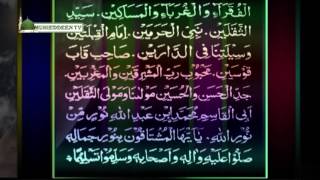 MUHIEDDEEN TV
الفقراء والغرباء والمساكين. سيد
الثقلين. نبي الحرمين. امام القبلتين
وسيلتنا في الدارين. صاحب قاب
قوسين. محبوب رب المشرقين والمغربين.
جد الحسن والحسين مولنا ومولى الثقلين
أبي القاسم محمد بن عبد الله نور من
نور الله. يأيها المشتاقون بنور جماله
صلوا عليه وآله وأصحابه وسلموا تسليما